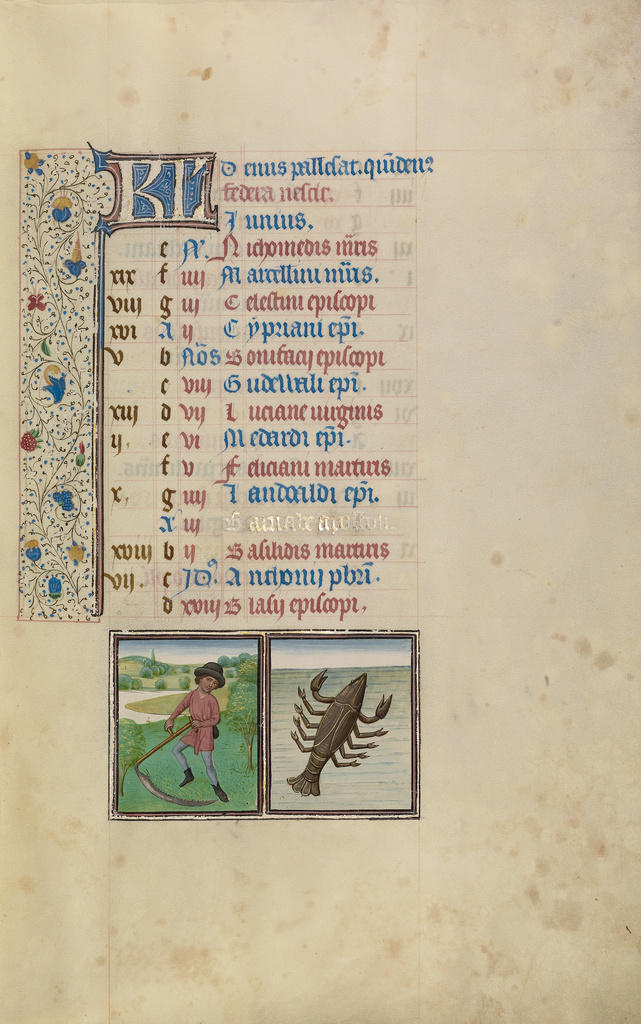 KL D enus pallesat. quindenus
federa nescit.
Junius.
e N. Nichomedis mris
xix f iiii Marcellini mris.
viii g iii Celestini episcopi
xvi A ii Cypriani epi.
v b Nos Bonifacij episcopi
c viii Gudewali epi.
xiii d vii Luciane uirginis
ij. e vi Medardi epi.
f v Feliciani martiris
x. g iiii Landoaldi epi.
A iii Barnabe
xviii b ii Basilidis martiris
vii. c ID9. Anthonij pbri.
d xviii Blasij episcopi.